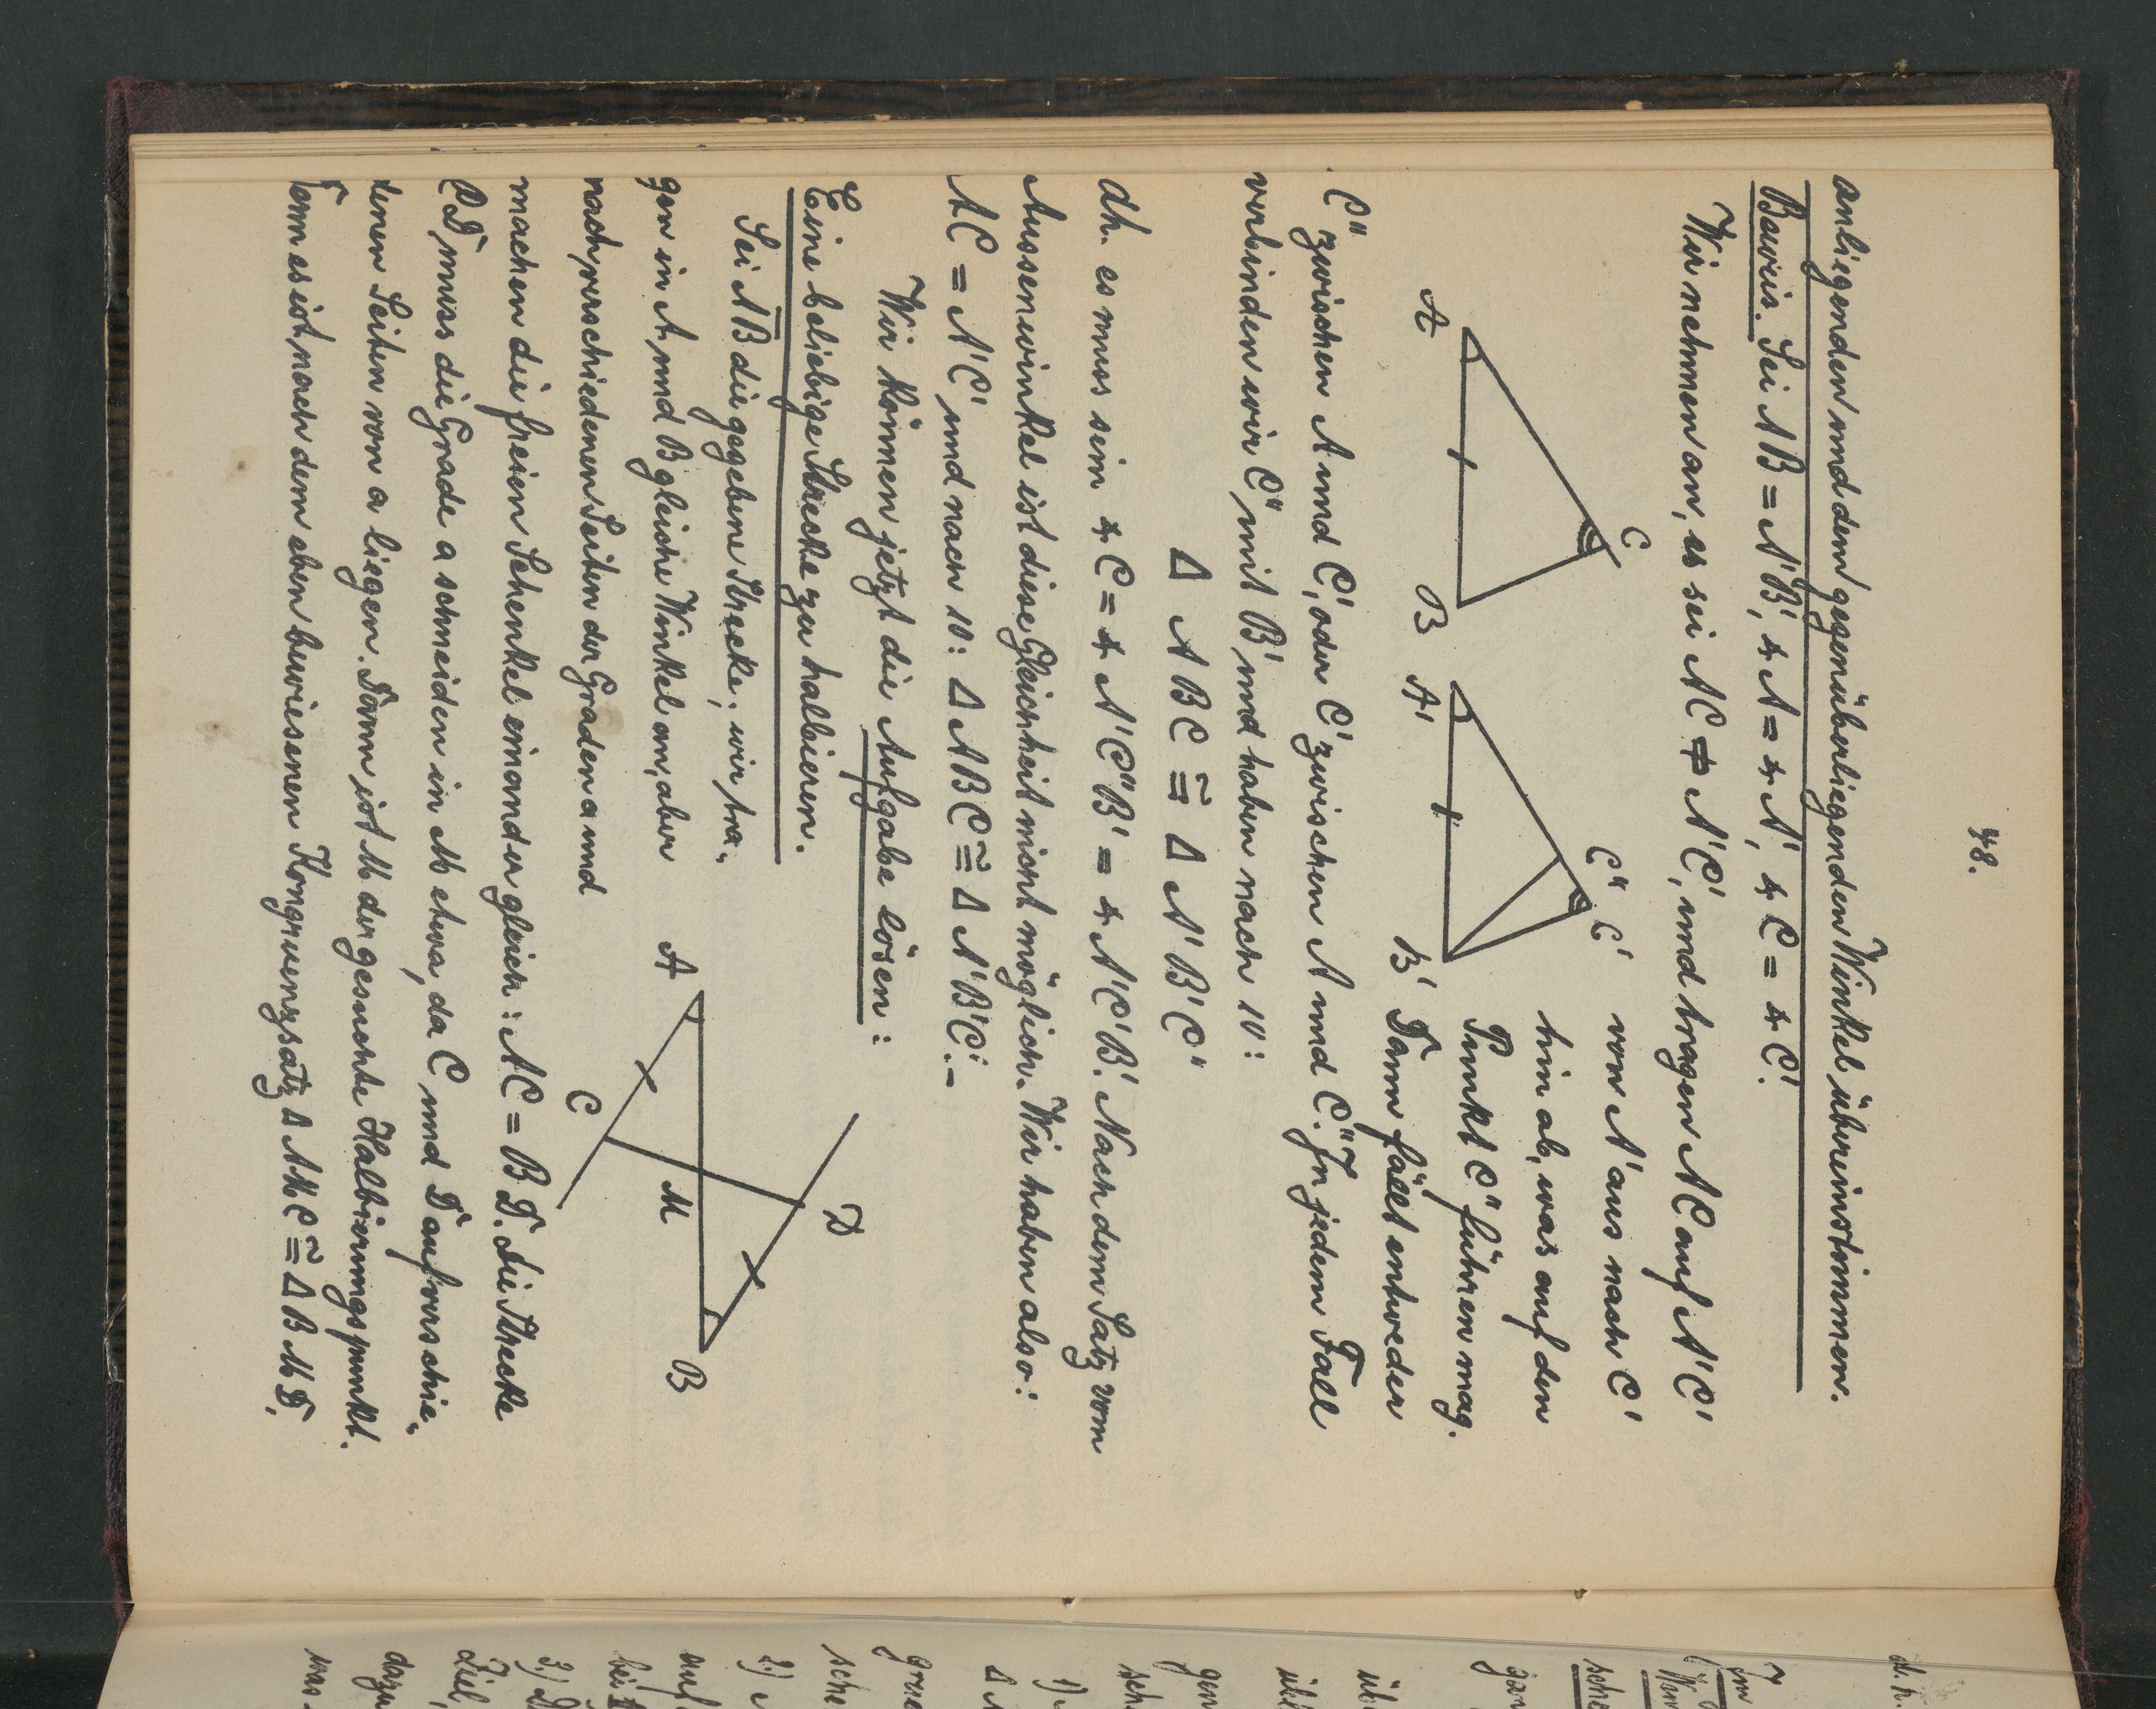 48.
anliegenden und dem gegenüberliegenden Winkel übereinstimmen.
Beweis. Sei AB = A'B', ∢ A = ∢ A', ∢ C = ∢ C'.
Wir nehmen an, es sei AC ≠ A'C', und tragen AC auf A'C'
von A' aus nach C'
hin ab, was auf den
Punkt C'' führen mag.
Dann fällt entweder
A B C
A' B' C'' C'
C'' zwischen A und C', oder C' zwischen A und C''. In jedem Fall
verbinden wir C'' mit B' und haben nach 10:
Δ ABC ≅ Δ A'B'C''
dh. es muss sein ∢ C = ∢ A'C''B' = ∢ A'C'B'. Nach dem Satz vom
Aussenwinkel ist diese Gleichheit nicht möglich. Wir haben also:
AC = A'C' und nach 10: Δ ABC ≅ Δ A'B'C'. –
Wir können jetzt die Aufgabe lösen:
Eine beliebige Strecke zu halbieren.
Sei AB die gegebene Strecke; wir tra-
gen in A und B gleiche Winkel an, aber
nach verschiedenen Seiten der Graden a und
A B C D M
machen die freien Schenkel einander gleich: AC = BD. Die Strecke
CD muss die Grade a schneiden in M etwa, da C und D auf verschie-
denen Seiten von a liegen. Dann ist M der gesuchte Halbierungspunkt.
Denn es ist nach dem eben bewiesenen Kongruenzsatz Δ AMC ≅ Δ BMD,